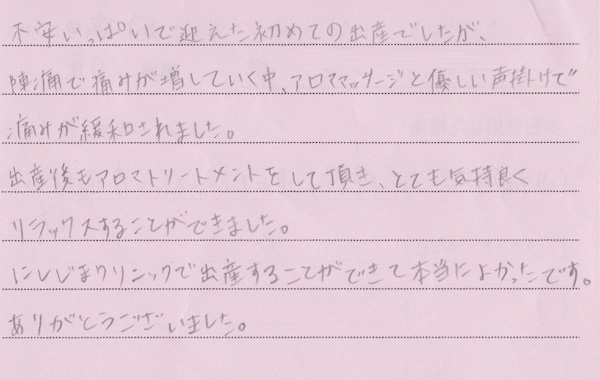 不安いっぱいで迎えた初めての出産でしたが、
陣痛で痛みが増していく中、アロママッサージと優しい声掛けで
痛みが緩和されました。
出産後もアロマトリートメントをして頂き、とても気持良く
リラックスすることができました。
にしじまクリニックで出産することができて本当によかったです。
ありがとうございました。